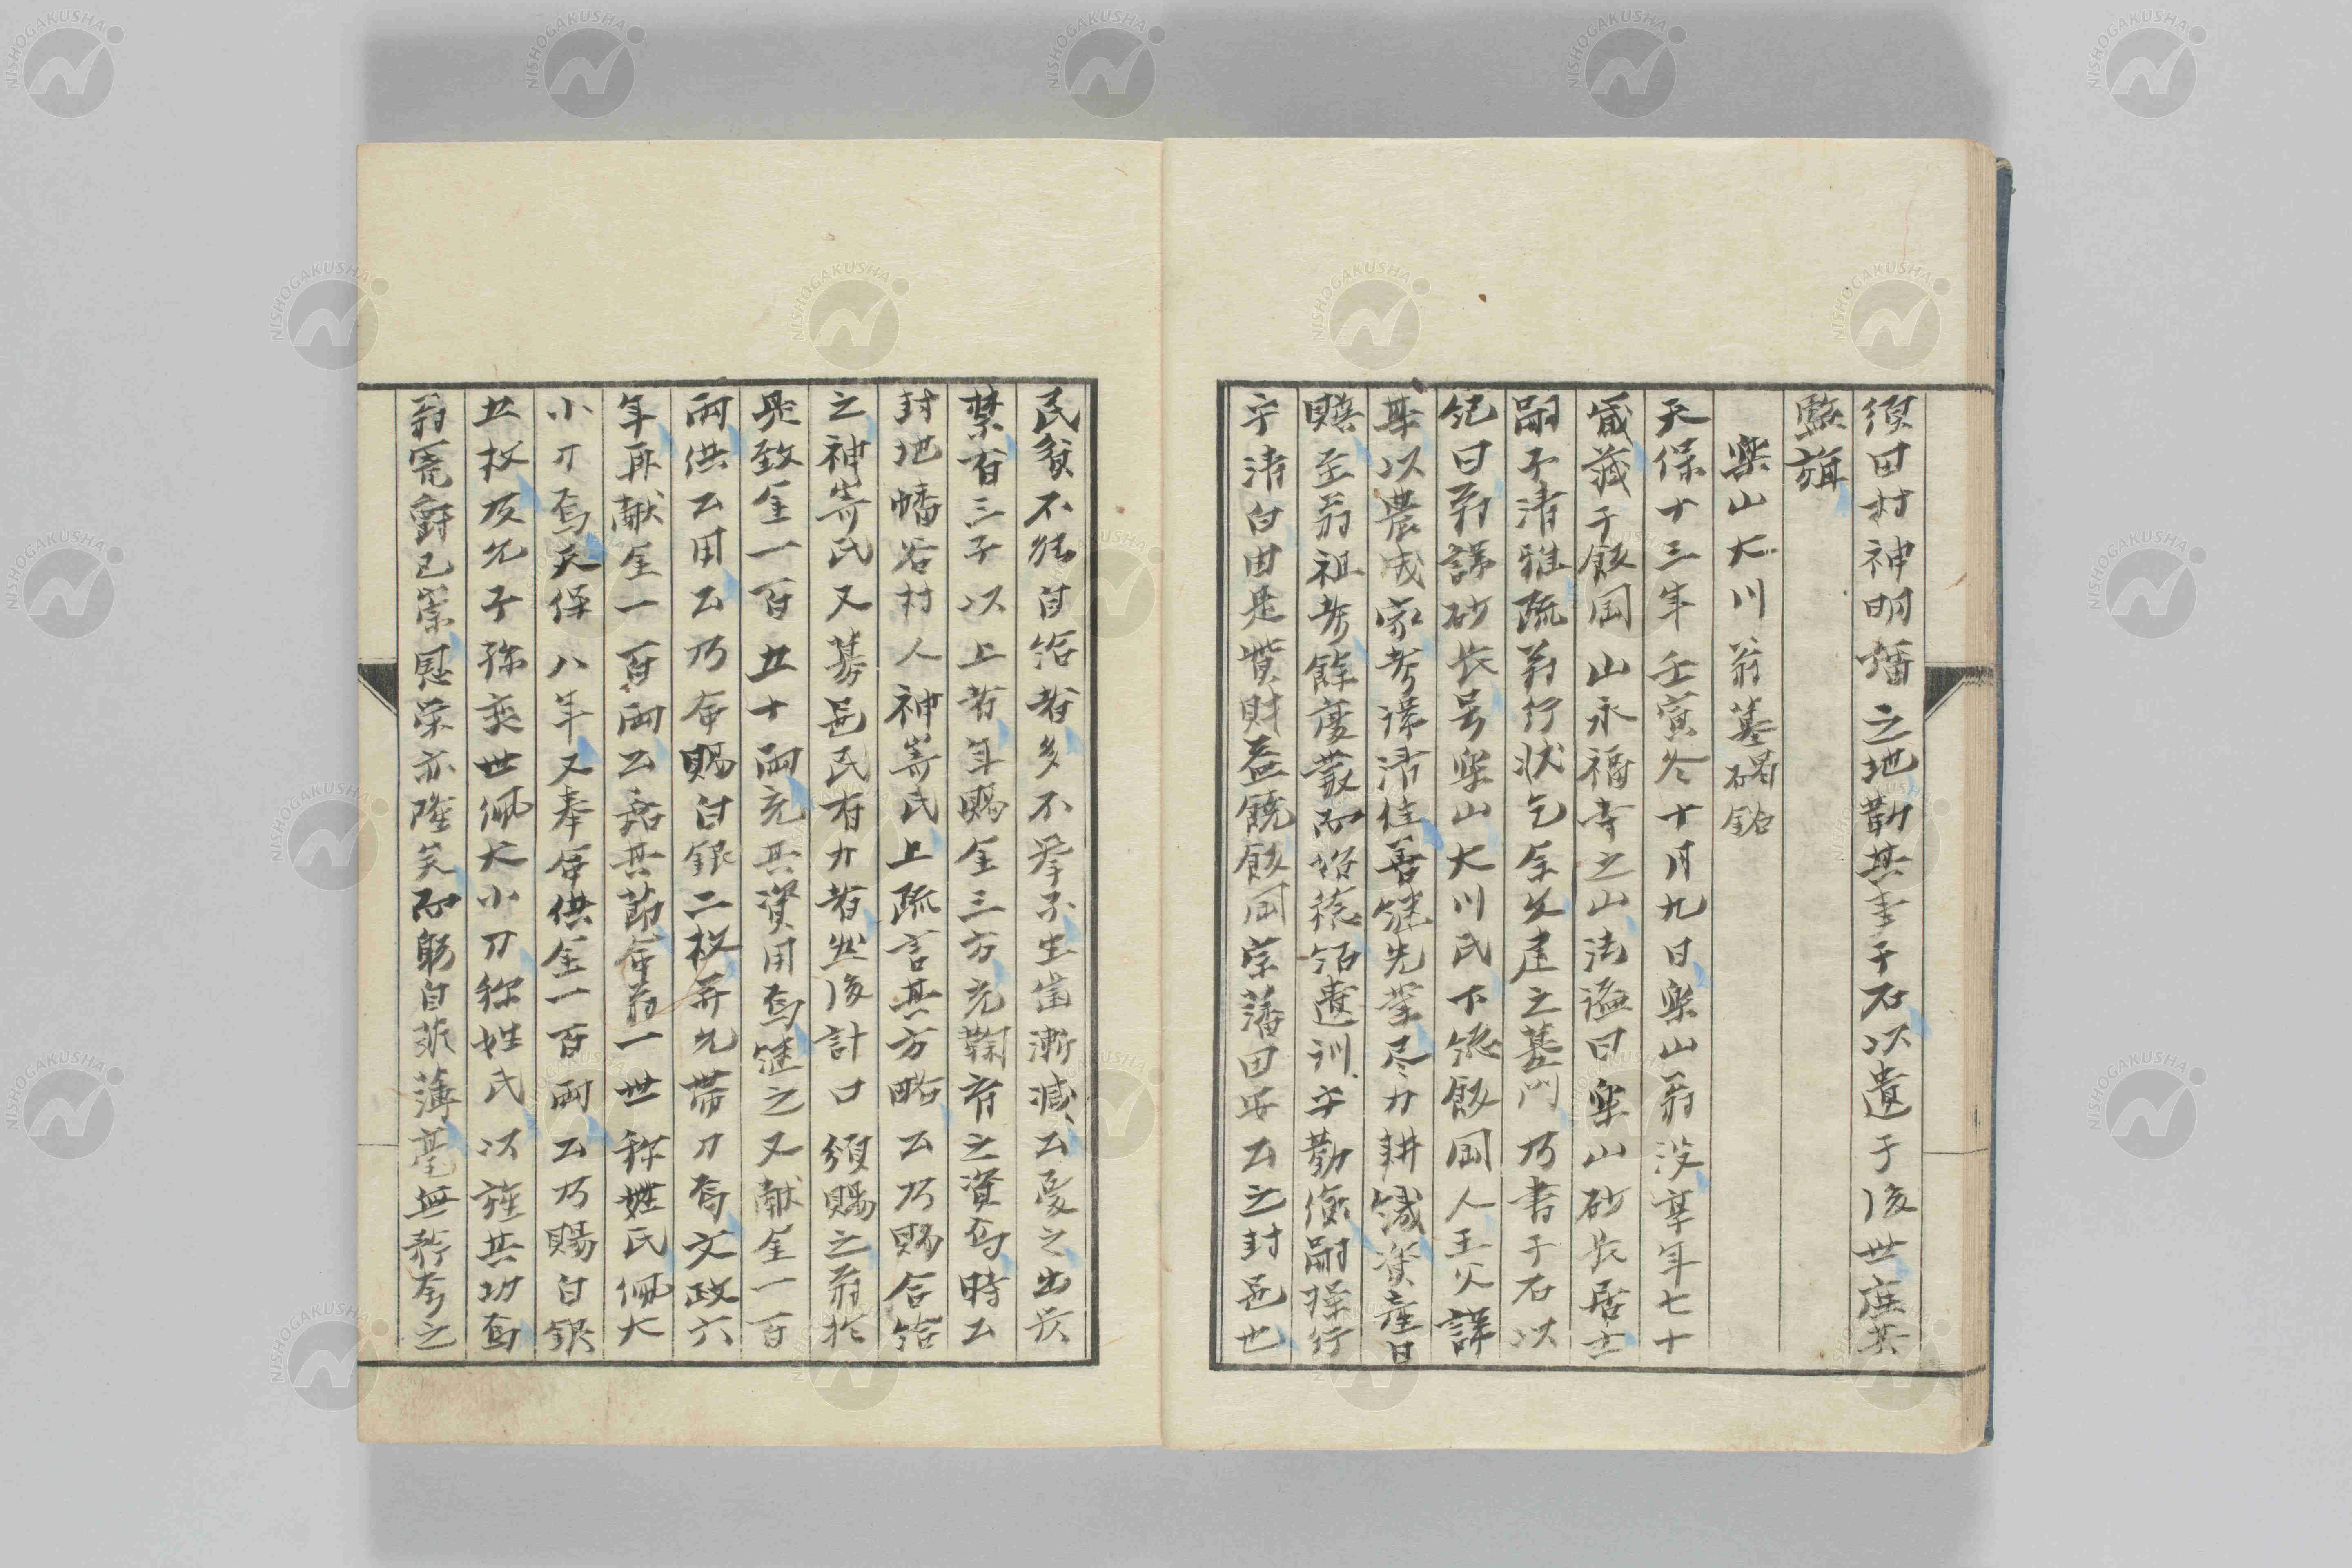 須田村神明播之地勒其事于石以遺于後世庶其
監旃
楽山大川翁墓碣銘
天保十三年壬寅冬十月九日楽山翁没享年七十
歳葬于飯岡山永福寺之山法謚曰楽山砂長居士
嗣子清雅疏翁行状乞余文建之墓門乃書于石以
紀曰翁諱砂長号楽山大川氏下総飯岡人王父諱
以農成家考諱清住善継先業尽力耕織資産日
贍至翁祖考餘慶叢而招稔領遺訓守勤倹嗣操行
守清白由是貲財益饒飯岡業藩田安公之封邑也
民貧不能自給者多不挙子生歯漸減公憂之出厳
禁有三子以上者年賜金三方充鞠育之資焉時公
封地幡谷村人神嵜氏上疏言其方略公乃賜合給
之神嵜氏又募邑民有力者然後計口須賜之翁於
是致金一百五十両充其資用焉継之又献金一百
両供公用公乃命賜白銀二枚并允帯刀焉文政六
年再献金一百両公嘉其節命翁一世称姓氏佩大
小刀焉天保八年又奉命供金一百両公乃賜白銀
五枚及允子孫奕世佩大小刀称姓氏以旌其功焉
翁寵爵已崇恩栄亦隆矣而躬自菲薄毫無矜夸之
NISHOGAKUSHA